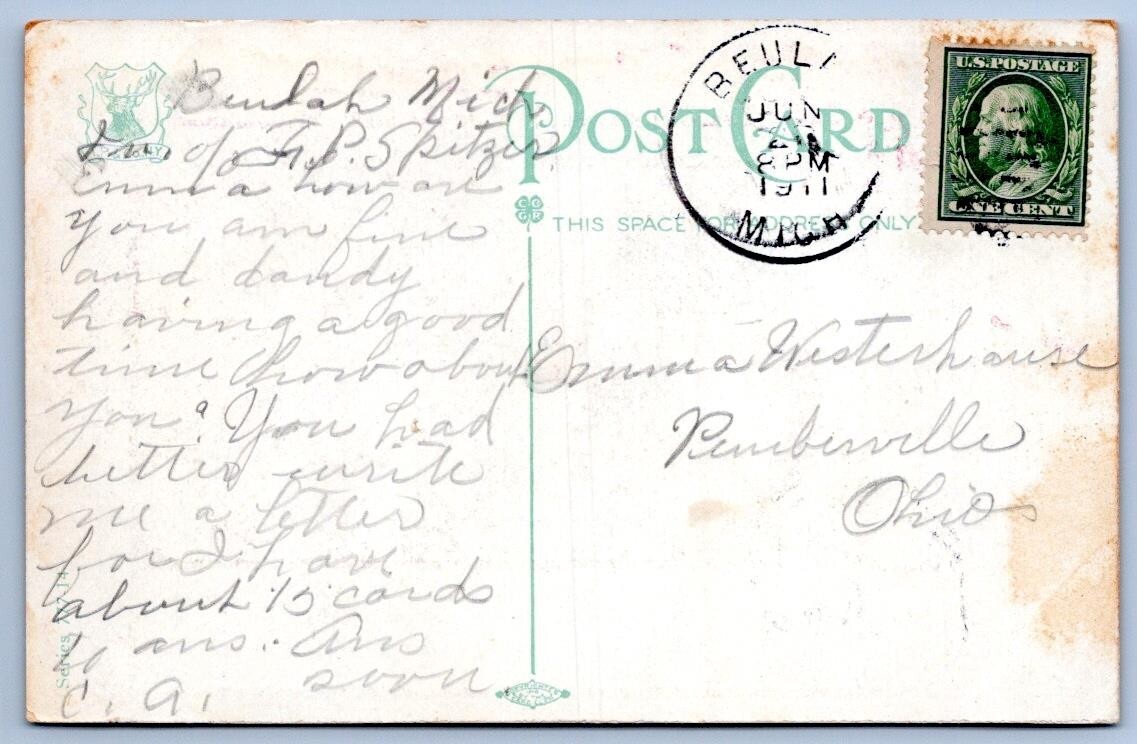 Beulah Mich
of F. P. Spitzer
Emma how are
you am fine
and dandy
having a good
time how about
you? You had
better write
me a letter
for I have
about 15 cards
to ans. Ans
soon
C. A.
Series 717-14
POST CARD
THIS SPACE FOR ADDRESS ONLY
BEUL
JUN
24
8 PM
1911
MICH
U.S. POSTAGE
ONE CENT
Emma Westerhouse
Pemberville
Ohio